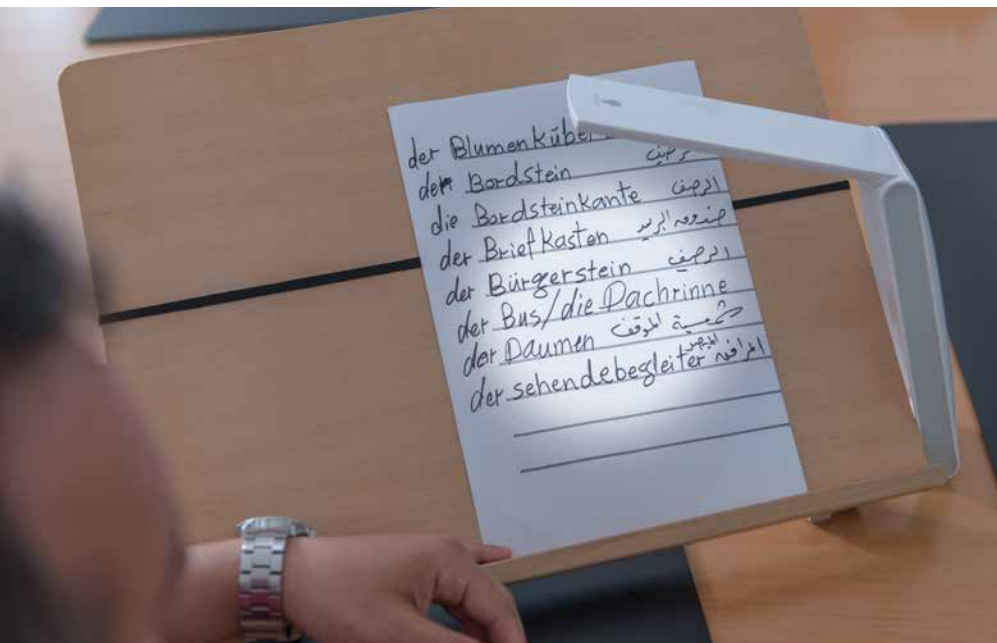 der Blumenkübel
der Bordstein الرصيف
die Bordsteinkante الرصف
der Briefkasten صندوق البريد
der Bürgerstein الرصيف
der Bus/die Dachrinne
der Daumen شمسية الموقف
der sehendebegleiter المرافق المبصر